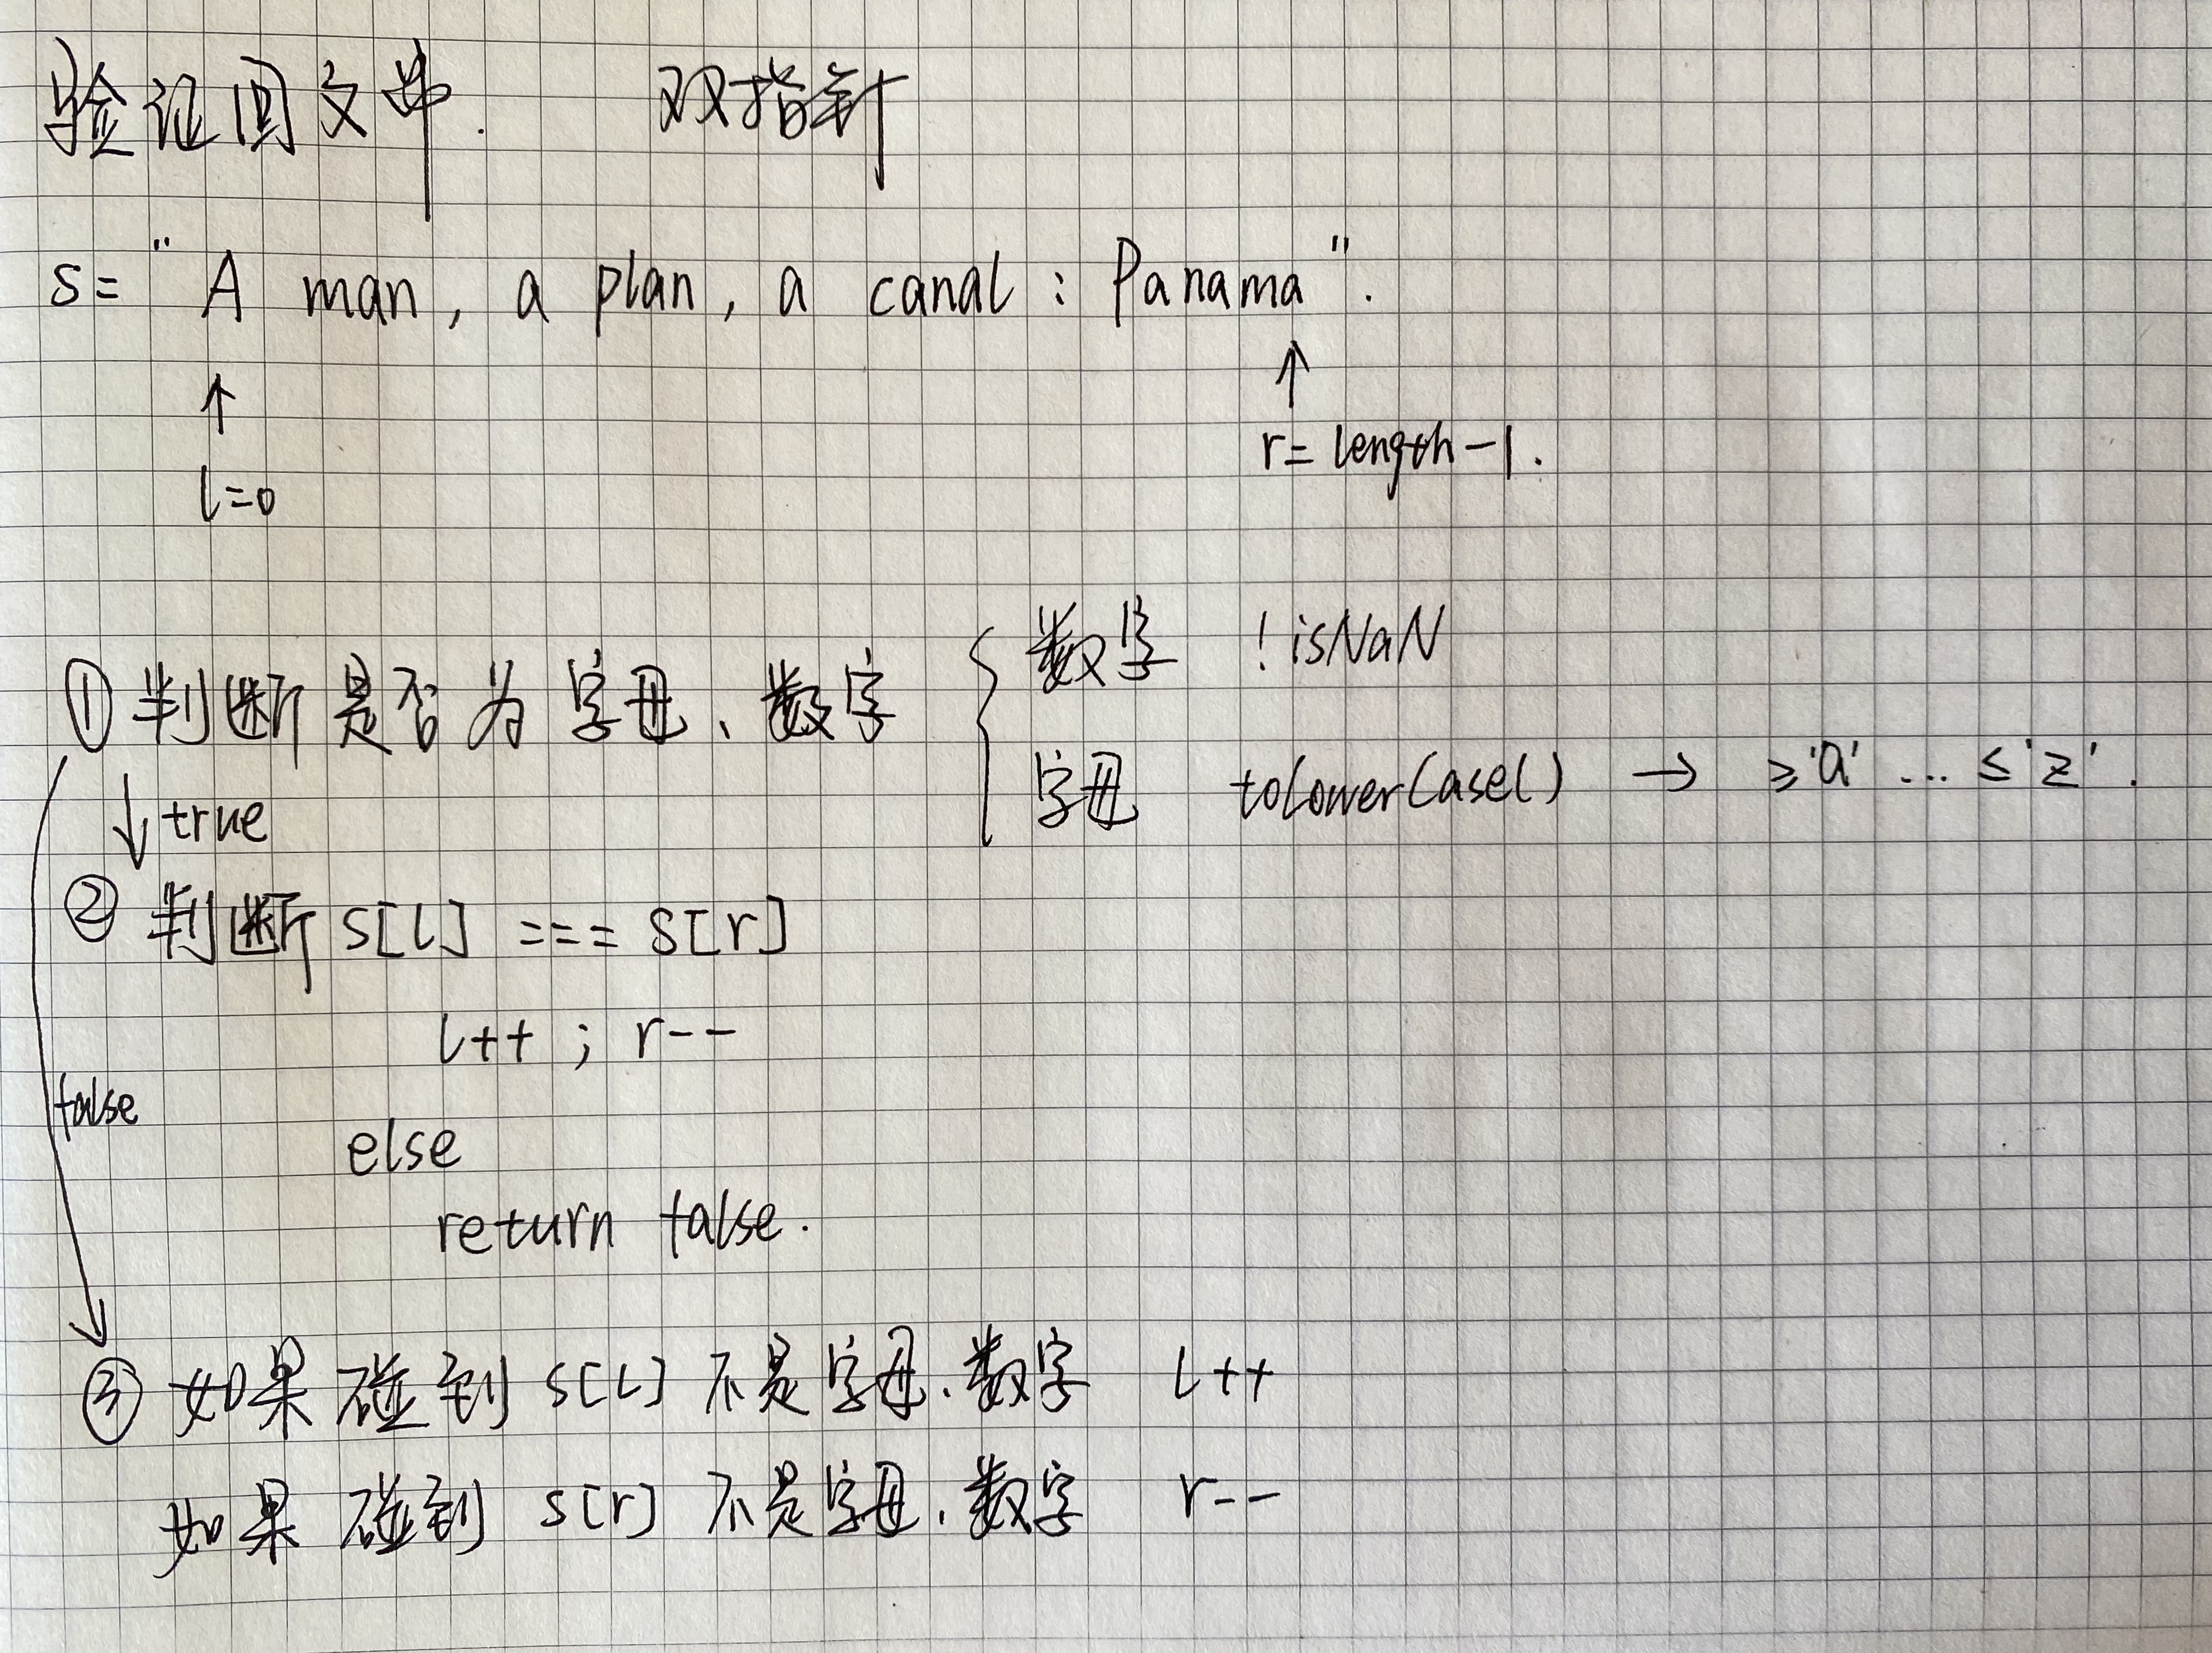 验证回文串. 双指针
s= "A man, a plan, a canal : Panama".
↑ ↑
l=0 r= length-1.
① 判断是否为字母、数字 { 数字 !isNaN
字母 toLowerCase() → ≥'a' ... ≤'z'.
↓ true
② 判断 s[l] === s[r]
l++ ; r--
false
else
return false.
③ 如果碰到 s[l] 不是字母、数字 l++
如果碰到 s[r] 不是字母、数字 r--